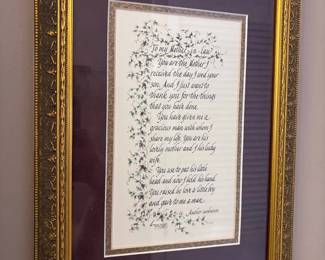 To my Mother-in-law
You are the Mother I
received the day I wed your
son. And I just want to
thank you for the things
that you have done.
You have given me a
gracious man with whom I
share my life. You are his
lovely mother and I his lucky
wife.
You use to pat his little
head and now I hold his hand.
You raised in love a little boy
and gave to me a man.
Author unknown